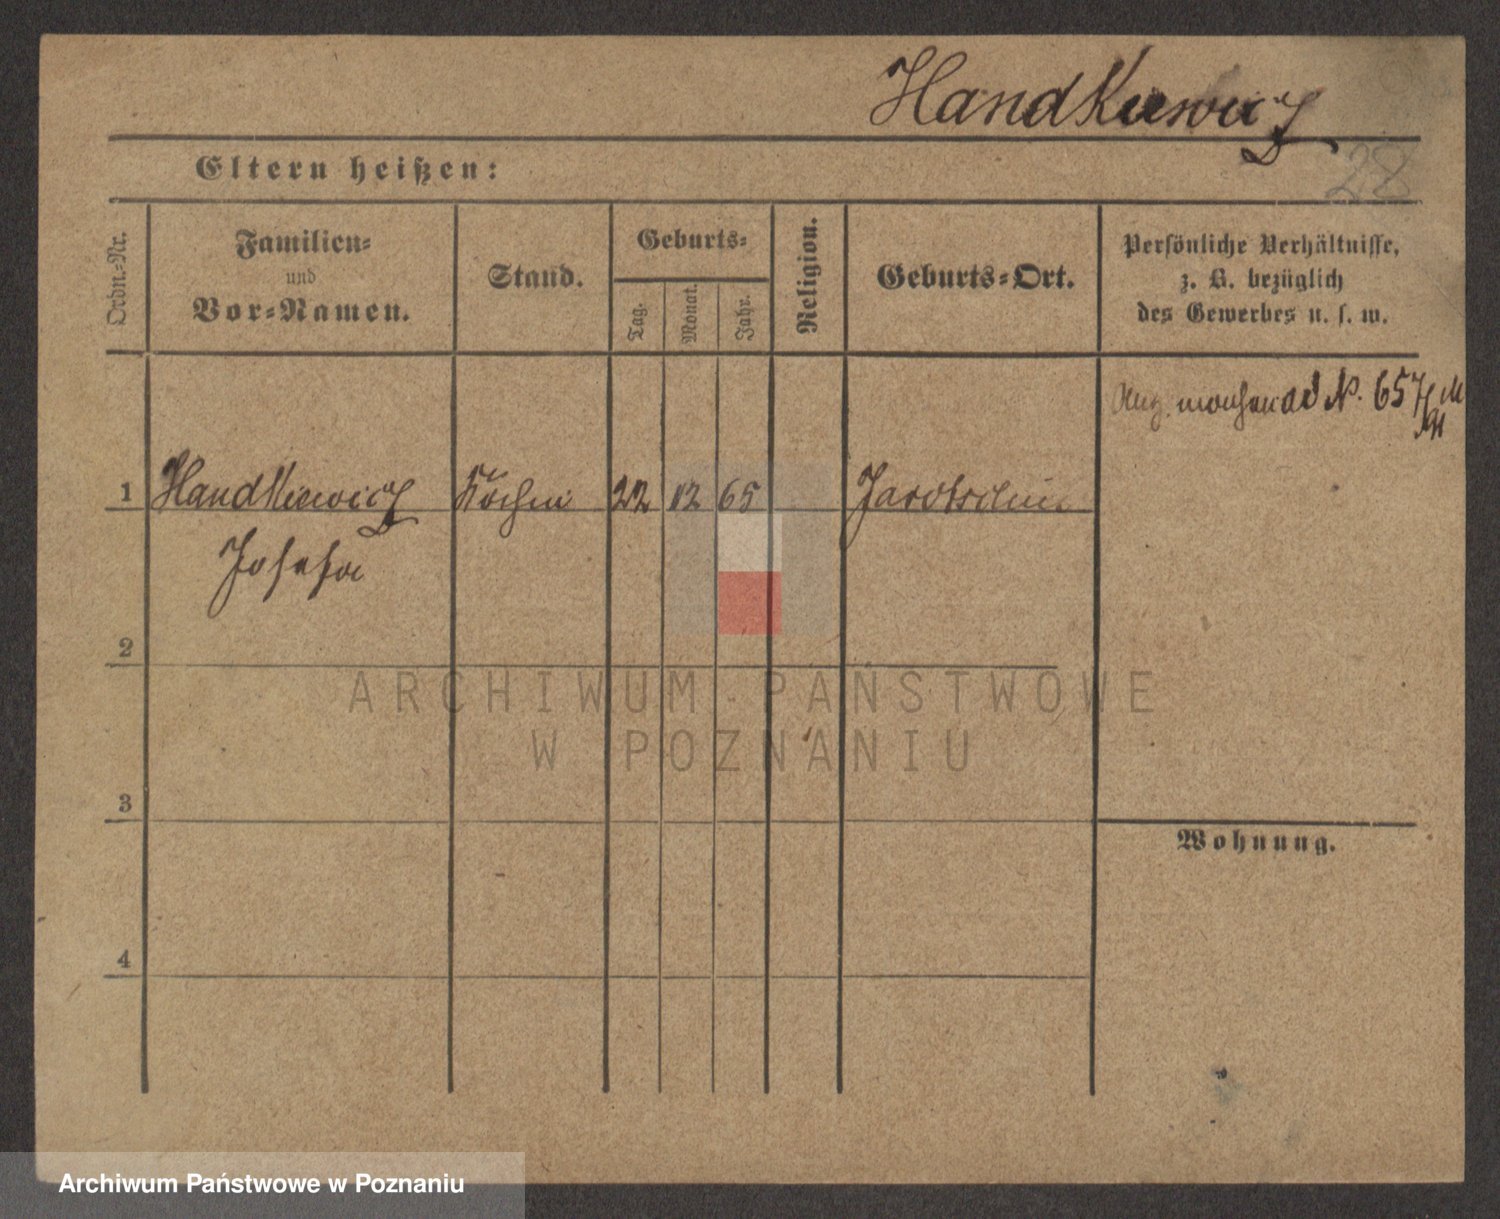 Handkiewicz
28
Eltern heißen:
Ordn.-Nr.
Familien-
und
Vor-Namen.
Stand.
Geburts-
Tag.
Monat.
Jahr.
Religion.
Geburts-Ort.
Persönliche Verhältnisse,
z. B. bezüglich
des Gewerbes u. s. w.
ad N. 657
1 Handkiewicz Köchin 22 12 65 Jarotschin
Josefa
2
ARCHIWUM PAŃSTWOWE
W POZNANIU
3
Wohnung.
4
Archiwum Państwowe w Poznaniu